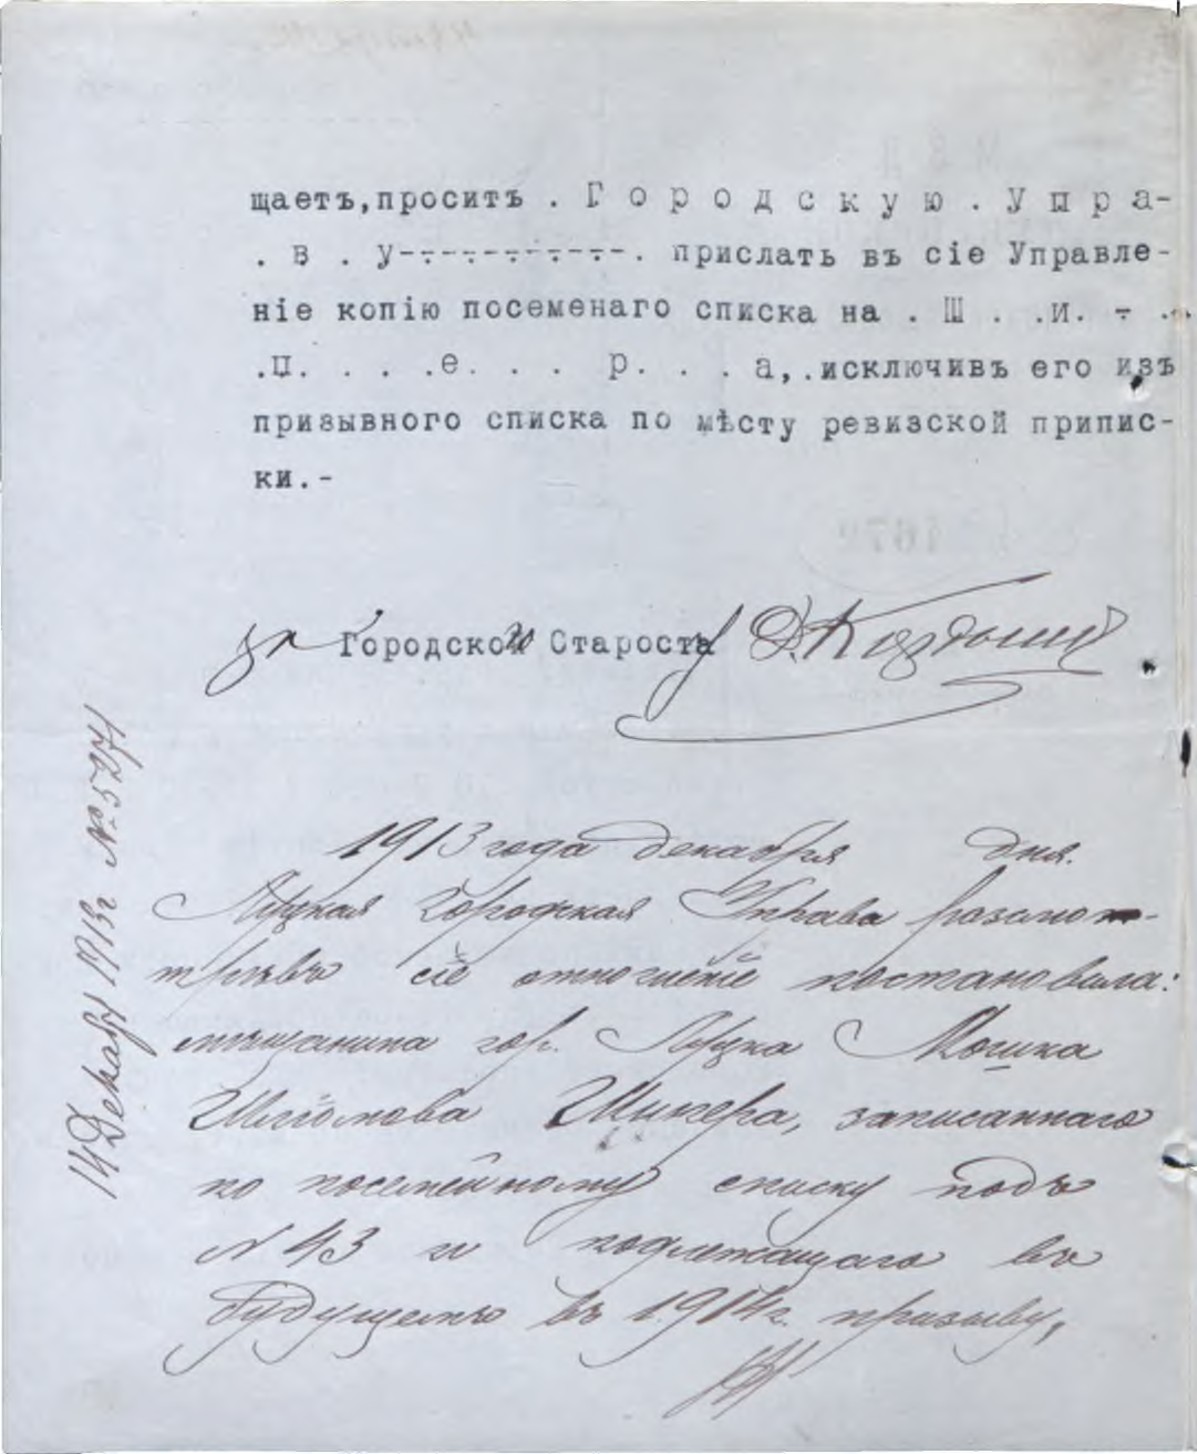 щаетъ,просить . Г о р о д с к у ю . У п р а-
. в . у-------------. прислать въ сіе Управле-
ніе копію посеменаго списка на . Ш . .и. - .
.п. . . .е. . . р. . . а,.исключивъ его изъ
призывного списка по мѣсту ревизской припис-
ки.-
за Городской Староста
14 Декабр 1913г №5271
1913 года декабря дня.
Луцкая Городская Управа разсмот-
трѣвъ сіе отношеніе постановила:
мѣщанина гор. Луцка Мошка
Шлёмова Шипера, записаннаго
по посемейному списку подъ
N 43 и подлежащаго въ
будущемъ въ 1914г. призыву,